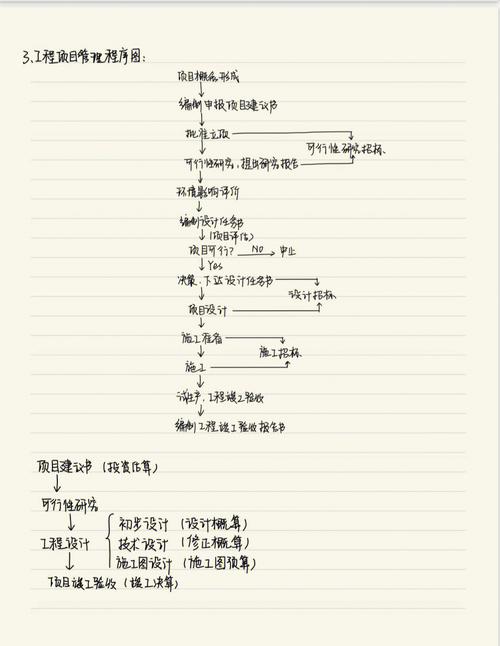 3.工程项目管理程序图:
项目概念形成
编制申报项目建议书
批准立项
可行性研究招标
可行性研究,提出研究报告
环境影响评价
编制设计任务书
(项目评估)
项目可行? NO 中止
Yes
决策、下达设计任务书
设计招标
项目设计
施工准备
施工招标
施工
试生产,工程竣工验收
编制工程竣工验收报告书
项目建议书 (投资估算)
可行性研究
初步设计 (设计概算)
工程设计 技术设计 (修正概算)
施工图设计 (施工图预算)
项目竣工验收 (竣工决算)